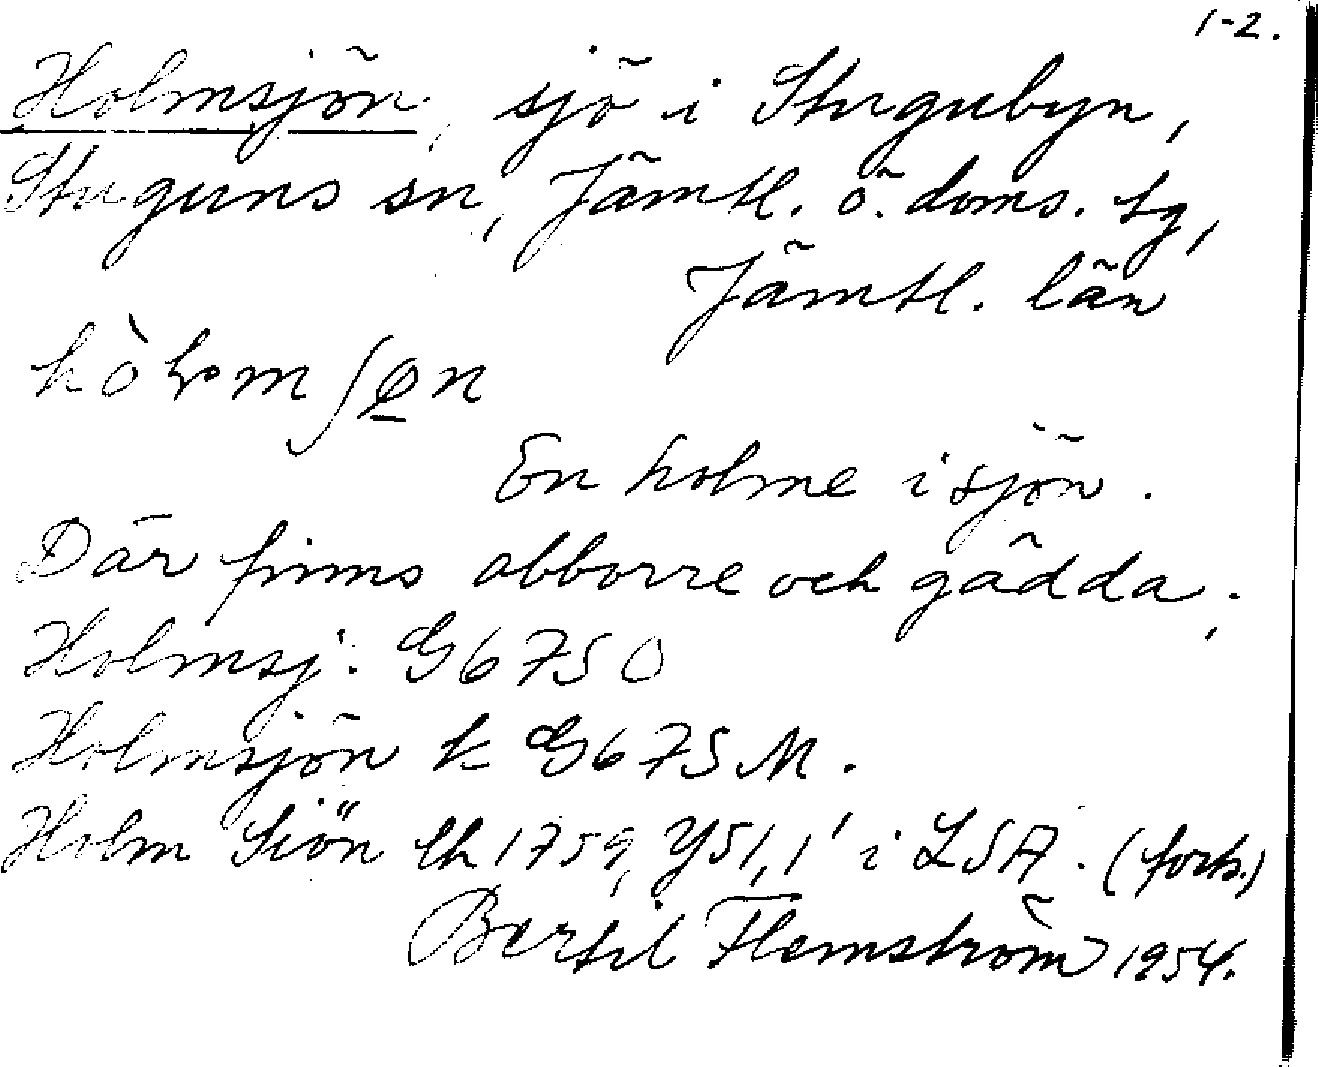 1-2.
Holmsjön, sjö i Stugubyn,
Stuguns sn, Jämtl. ö. doms. tg,
Jämtl. län
En holme i sjön.
Där finns abborre och gädda.
Holmsj. G675 O
Holmsjön k G675 M.
Holm Siön lk 1759, Y51, 1' i LSA. (forts.)
Bertil Flemström 1954.